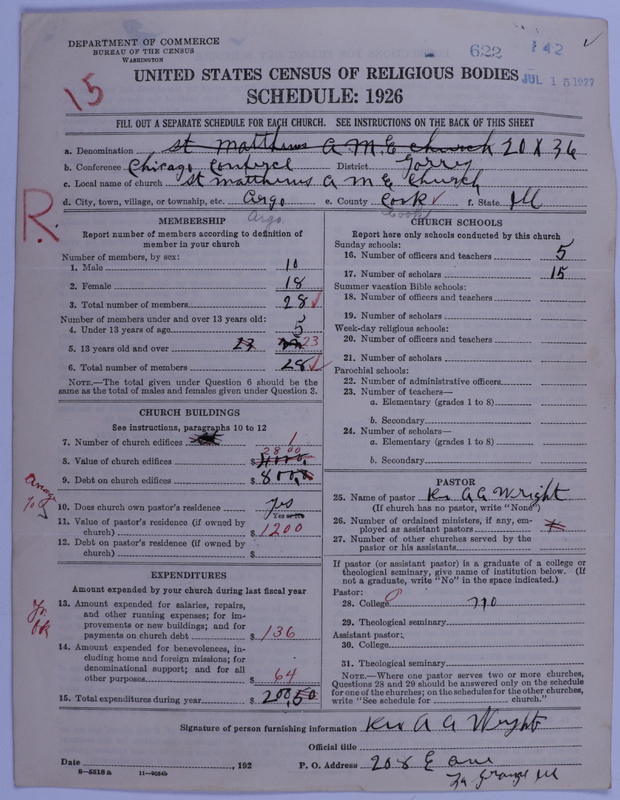 DEPARTMENT OF COMMERCE
BUREAU OF THE CENSUS
WASHINGTON
622 142
JUL 15 1927
15
UNITED STATES CENSUS OF RELIGIOUS BODIES
SCHEDULE: 1926
FILL OUT A SEPARATE SCHEDULE FOR EACH CHURCH. SEE INSTRUCTIONS ON THE BACK OF THIS SHEET
a. Denomination St Matthews A M.E church 20 X 36
b. Conference Chicago Conferce District Gorry
c. Local name of church St matthews A M E Church
d. City, town, village, or township, etc. Argo e. County Cook f. State Ill
Argo. Cook
R.
MEMBERSHIP
Report number of members according to definition of
member in your church
Number of members, by sex:
1. Male 10
2. Female 18
3. Total number of members 28
Number of members under and over 13 years old:
4. Under 13 years of age 5
5. 13 years old and over 23
6. Total number of members 28
NOTE.—The total given under Question 6 should be the
same as the total of males and females given under Question 3.
CHURCH BUILDINGS
See instructions, paragraphs 10 to 12
7. Number of church edifices 1
2800
8. Value of church edifices $
9. Debt on church edifices $ 800,0
10. Does church own pastor's residence yes
Yes or No
11. Value of pastor's residence (if owned by
church) $ 1200
12. Debt on pastor's residence (if owned by
church) $
EXPENDITURES
Amount expended by your church during last fiscal year
13. Amount expended for salaries, repairs,
and other running expenses; for im-
provements or new buildings; and for
payments on church debt $ 136
14. Amount expended for benevolences, in-
cluding home and foreign missions; for
denominational support; and for all
other purposes $ 64
15. Total expenditures during year $ 200,50
CHURCH SCHOOLS
Report here only schools conducted by this church
Sunday schools:
16. Number of officers and teachers 5
17. Number of scholars 15
Summer vacation Bible schools:
18. Number of officers and teachers
19. Number of scholars
Week-day religious schools:
20. Number of officers and teachers
21. Number of scholars
Parochial schools:
22. Number of administrative officers
23. Number of teachers—
a. Elementary (grades 1 to 8)
b. Secondary
24. Number of scholars—
a. Elementary (grades 1 to 8)
b. Secondary
PASTOR
25. Name of pastor Rev A G Wright
(If church has no pastor, write "None")
26. Number of ordained ministers, if any, em-
ployed as assistant pastors
27. Number of other churches served by the
pastor or his assistants
If pastor (or assistant pastor) is a graduate of a college or
theological seminary, give name of institution below. (If
not a graduate, write "No" in the space indicated.)
Pastor:
28. College no
29. Theological seminary
Assistant pastor:
30. College
31. Theological seminary
NOTE.—Where one pastor serves two or more churches,
Questions 28 and 29 should be answered only on the schedule
for one of the churches; on the schedules for the other churches,
write "See schedule for church."
Signature of person furnishing information Rev A G Wright
Official title
Date , 192 P. O. Address 208 E ave
La Grange Ill
8—5518a 11—9054b